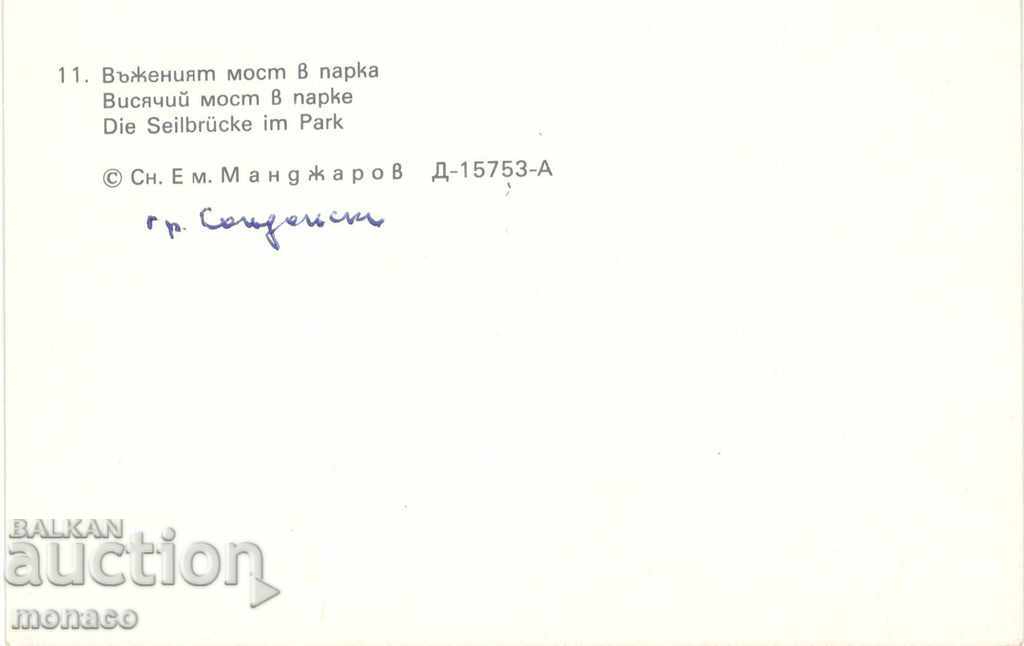 11. Въженият мост в парка
Висячий мост в парке
Die Seilbrücke im Park
© Сн. Ем. Манджаров Д-15753-А
гр. Сандански
BALKAN
auction
monaco